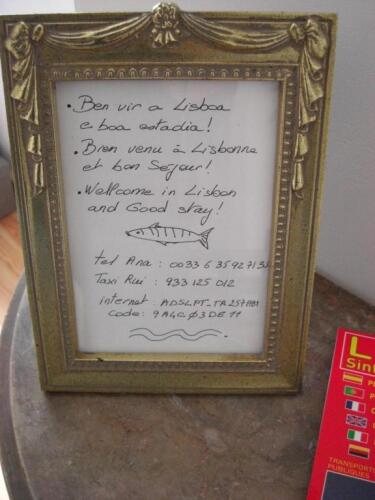 • Ben vir a Lisboa
e boa estadia!
• Bien venu à Lisbonne
et bon Séjour!
• Wellcome in Lisbon
and Good stay!
Tel Ana :
Taxi Rui : 933 125 012
internet :
code: 9A4C03DE11
L
Sint
TRANSPORT
PUBLIQUES